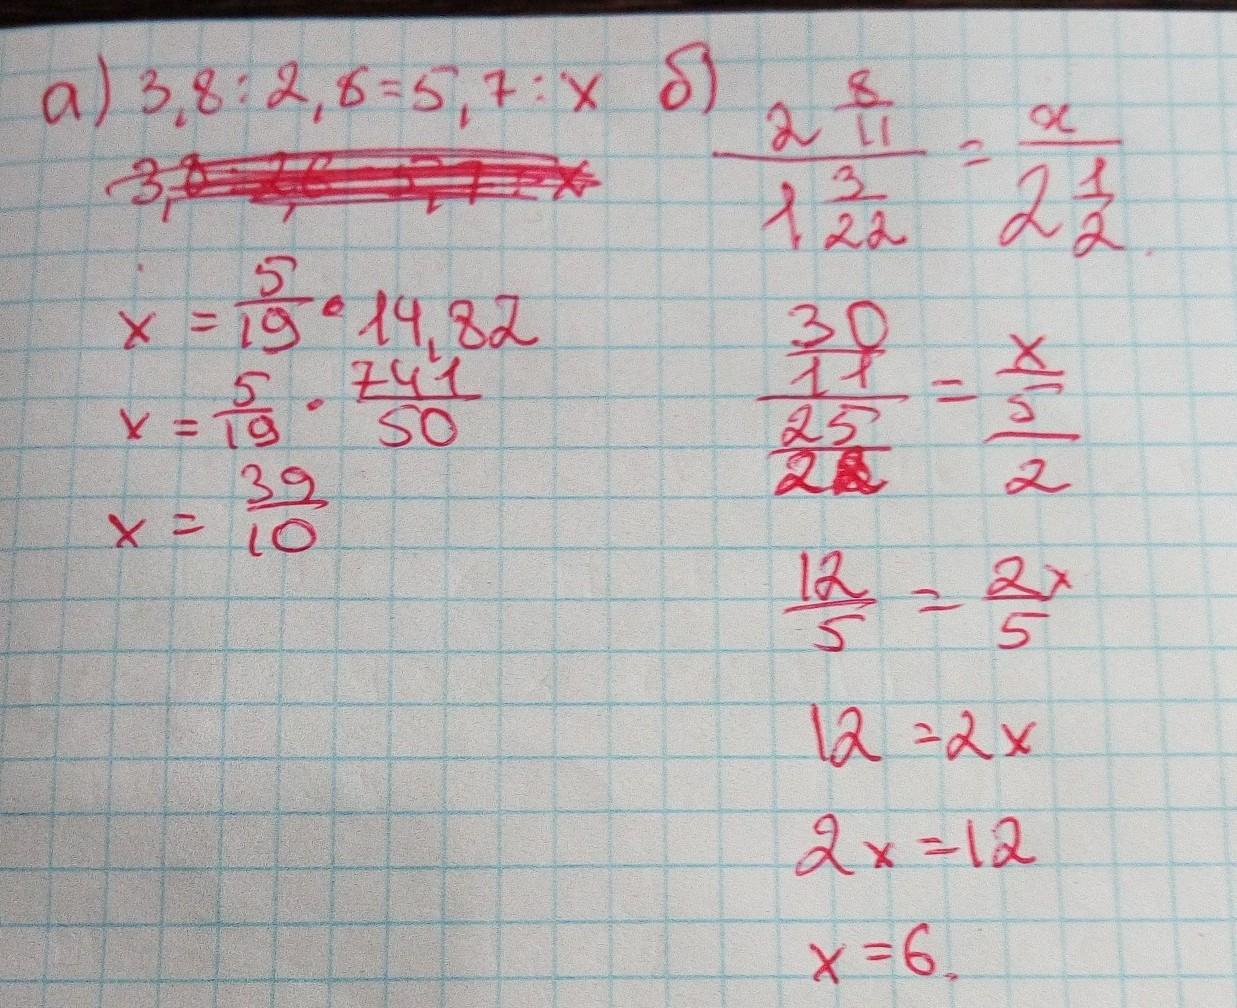 а) 3,8 : 2,6 = 5,7 : x
x = 5/19 · 14,82
x = 5/19 · 741/50
x = 39/10
б) (2 8/11)/(1 3/22) = x/(2 1/2)
(30/11)/(25/22) = x/(5/2)
12/5 = 2x/5
12 = 2x
2x = 12
x = 6.